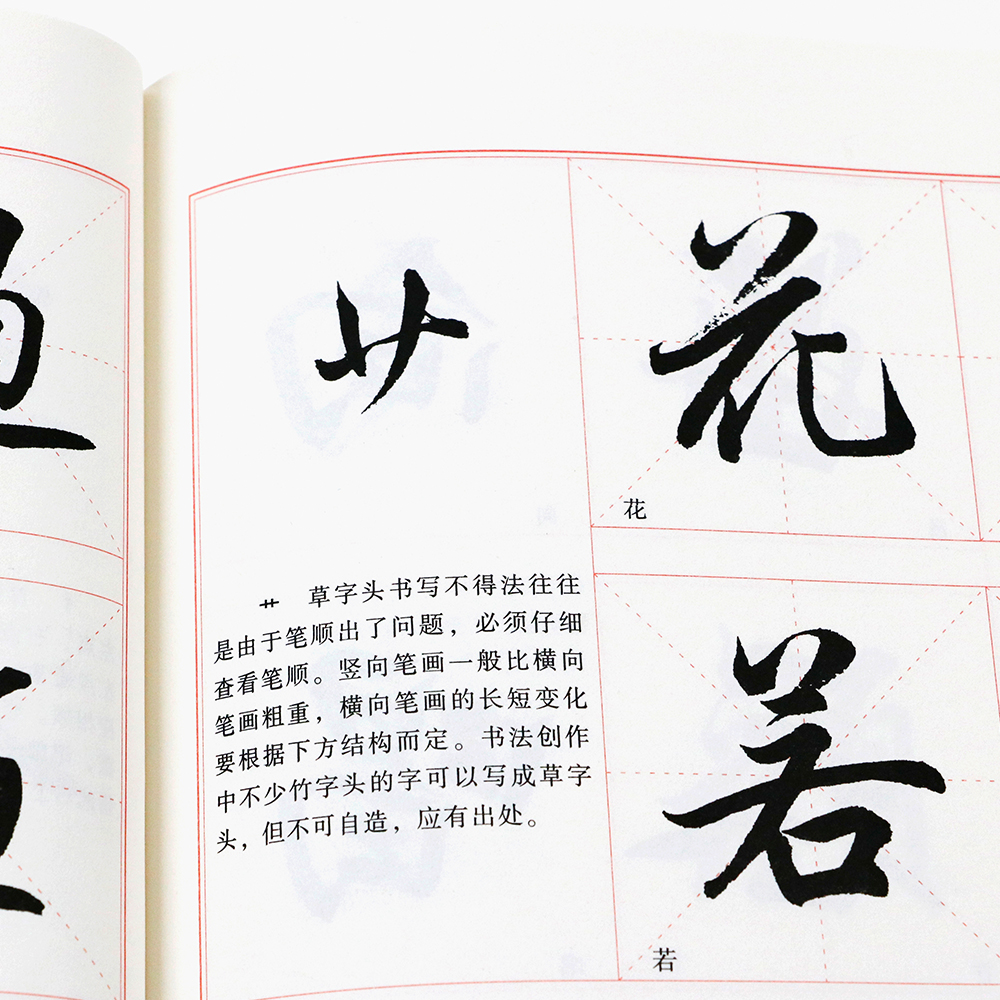 艹
花
花
艹 草字头书写不得法往往
是由于笔顺出了问题，必须仔细
查看笔顺。竖向笔画一般比横向
笔画粗重，横向笔画的长短变化
要根据下方结构而定。书法创作
中不少竹字头的字可以写成草字
头，但不可自造，应有出处。
若
若